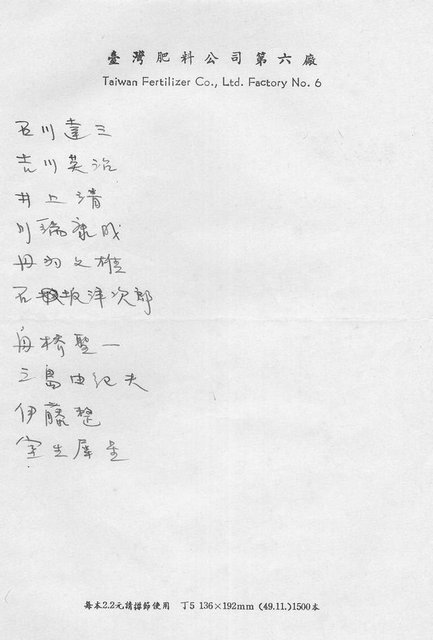 臺灣肥料公司第六廠
Taiwan Fertilizer Co., Ltd. Factory No. 6
石川達三
吉川英治
井上靖
川端康成
丹羽文雄
石坂洋次郎
舟橋聖一
三島由紀夫
伊藤整
室生犀星
每本2.2元請撙節使用 丁5 136×192mm (49.11.)1500本